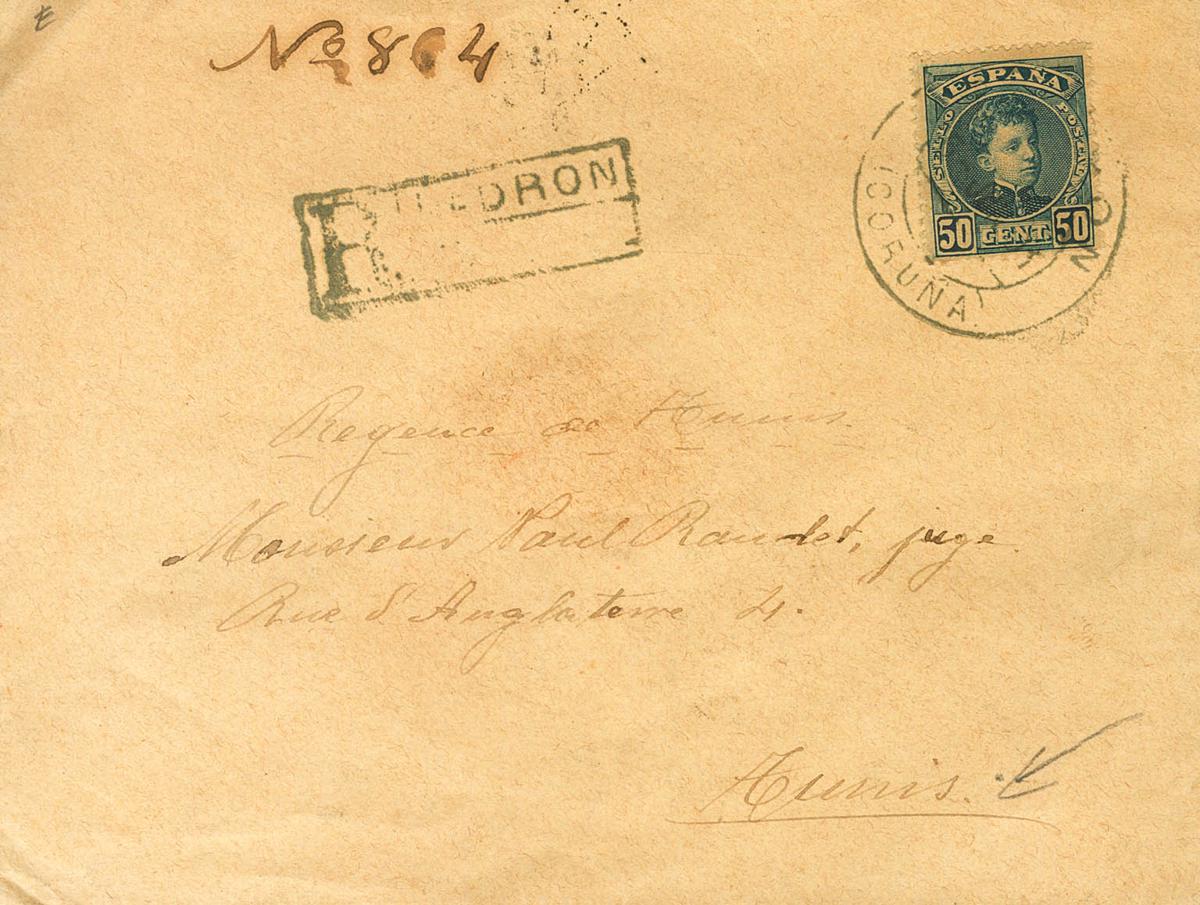 No 864
R
DRON
ESPAÑA
SELLO POSTAL
50 CENT. 50
(CORUÑA)
Regence de Tunis.
Monsieur Paul juge
Rue d'Anglaterre 4.
Tunis.